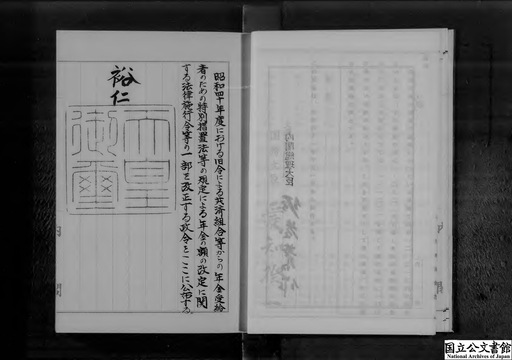 昭和四十年度における旧令による共済組合等からの年金受給
者のための特別措置法等の規定による年金の額の改定に関
する法律施行令等の一部を改正する政令をここに公布する
裕仁
天皇
御璽
内閣総理大臣
国立公文書館
National Archives of Japan